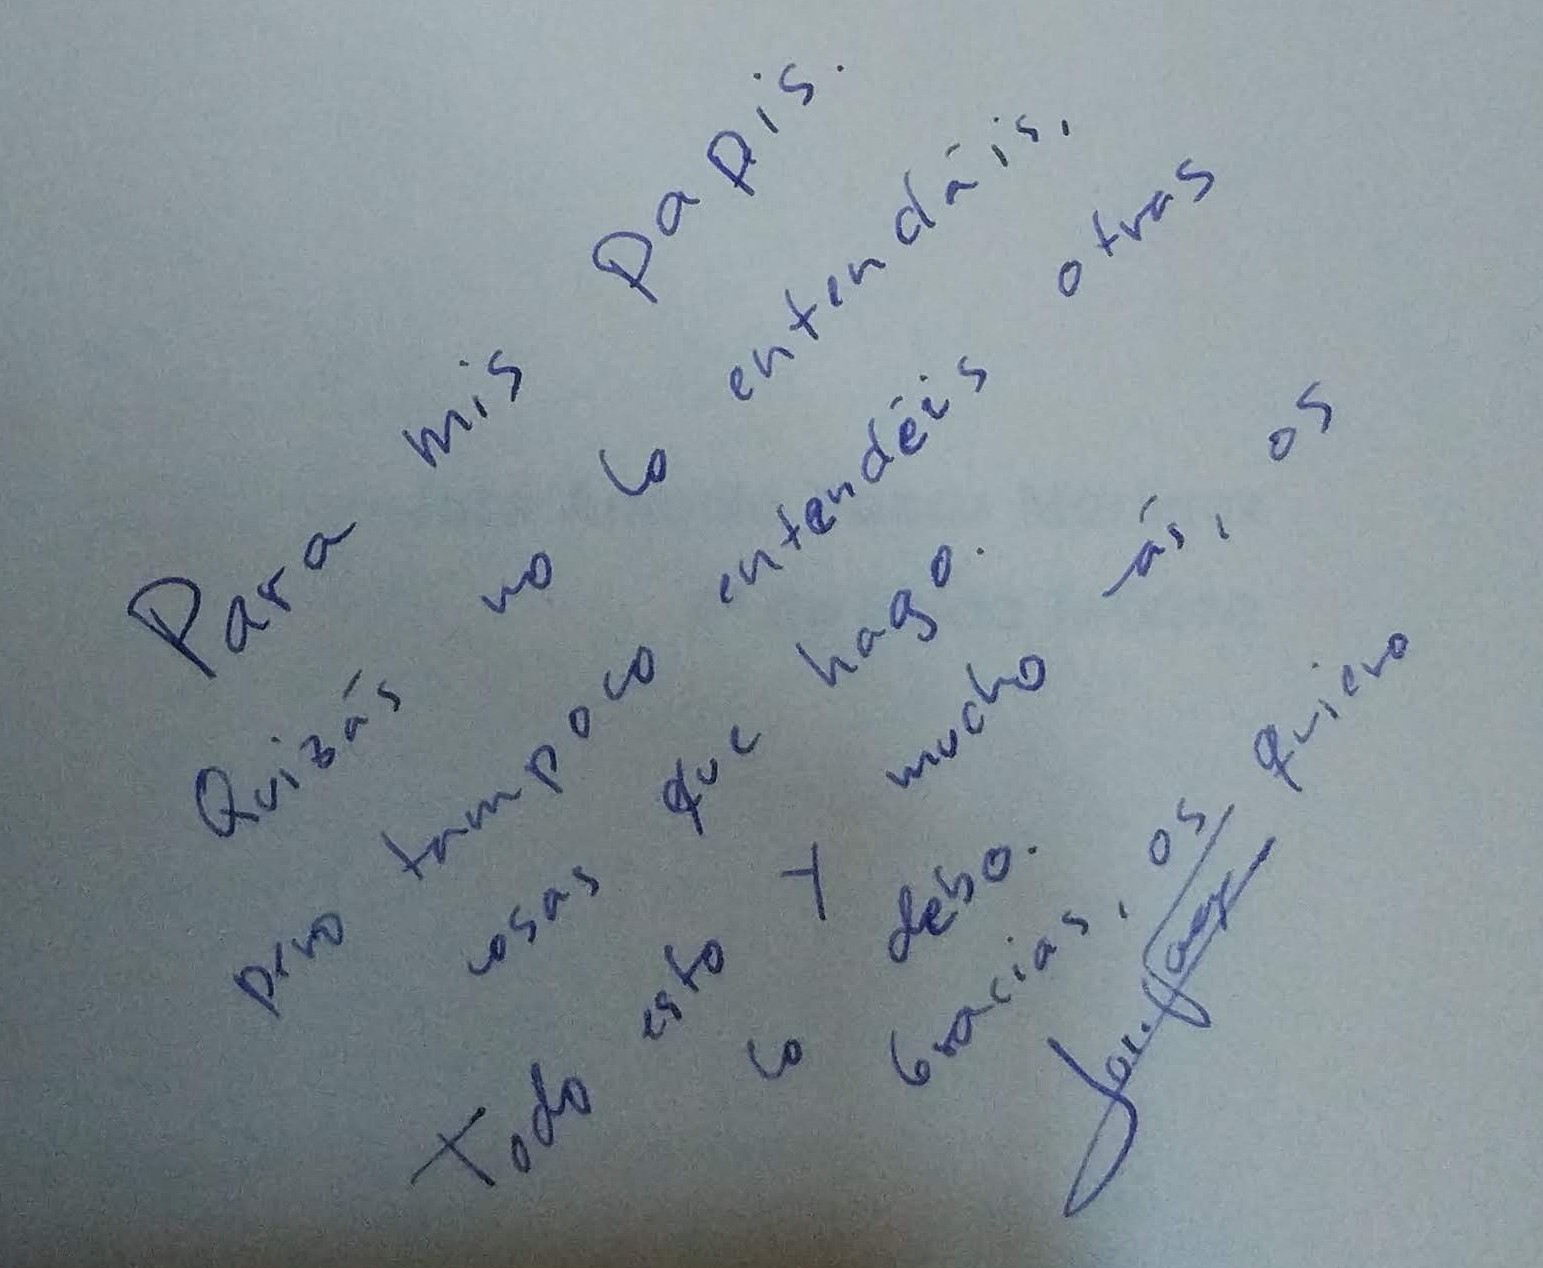 Para mis papis.
Quizás no lo entendáis,
pero tampoco entendéis otras
cosas que hago.
Todo esto y mucho más, os
lo debo.
Gracias, os quiero